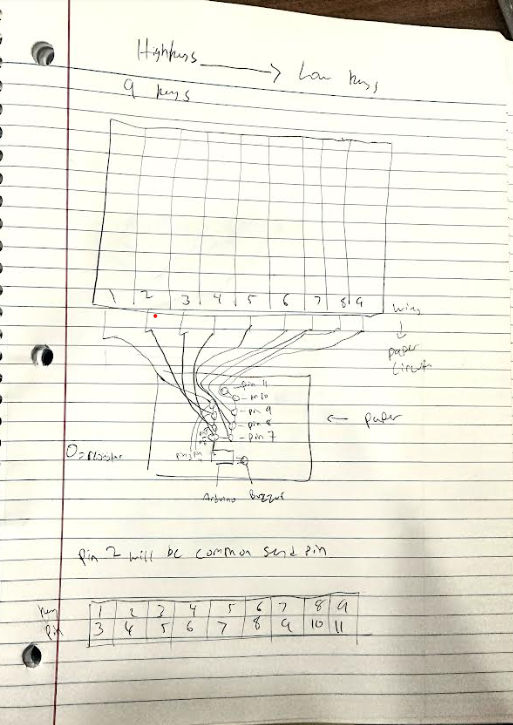 High keys → Low keys
9 keys
1 2 3 4 5 6 7 8 9
wires
↓
paper
circuit
pin 11
pin 10
pin 9
pin 8
pin 7
← paper
O = resistor
Arduino Buzzer
Pin 2 will be common send pin
key 1 2 3 4 5 6 7 8 9
Pin 3 4 5 6 7 8 9 10 11